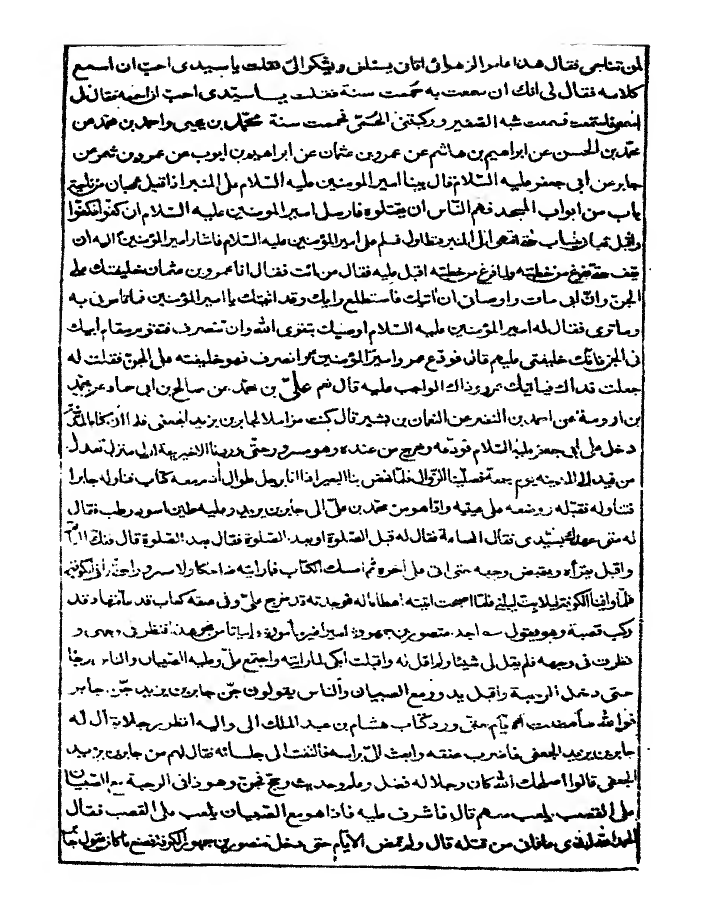 لمن تناجي فقال هذا عامر الزهرائي اتان يستفتى ويشكو الىّ فقلت يا سيدى احبّ ان اسمع
كلامه فقال لى انك ان سمعت به حممت سنة فقلت يا سيّدى احبّ ان اسمعه فقال لى
اسمعى فاستمعت فسمعت شبه الصّفير وركبتنى الحمّى فحممت سنة محمّد بن يحيى واحمد بن محمد عن
محمّد بن الحسن عن ابراهيم بن هاشم عن عمرو بن عثمان عن ابراهيم بن ايوب عن عمرو بن شمر عن
جابر عن ابى جعفر عليه السّلام قال بينا اسير المومنين عليه السّلام على المنبر اذ اقبل ثعبان من ناحية
باب من ابواب المسجد فهم النّاس ان يقتلوه فارسل امير المومنين عليه السّلام ان كفّوا فكفّوا
واقبل ثعبان ينساب حتّى انتهى الى المنبر فتطاول فسلم على امير المؤمنين عليه السّلام فاشار امير المؤمنين اليه ان
يقف حتى يفرغ من خطبته ولما فرغ من خطبته اقبل عليه فقال من انت فقال انا عمرو بن عثمان خليفتك على
الجن وانّ ابى مات واوصانى ان اتيك فاستطلع رايك وقد اتيتك يا امير المؤمنين فما تامرنى به
وما ترى فقال له امير المؤمنين عليه السّلام اوصيك بتقوى الله وان تنصرف فتقوم مقام ابيك
فى الجن فانّك خليفتى عليهم قال فودّع عمرو امير المؤمنين وانصرف فهو خليفته على الجنّ فقلت له
جعلت فداك فياتيك عمرو وذاك الواجب عليه قال نعم علىّ بن محمّد عن صالح بن ابى حماد عن محمّد
بن اورمة عن احمد بن النضر عن النعمان بن بشير قال كنت مزاملا لجابر بن يزيد الجعفى فلما ان كنا بالمدينة
دخل على ابى جعفر عليه السّلام فودّعه وخرج من عنده وهو مسرور حتّى وردنا الاخيرجة اول منزل تعدل
من فيد الى المدينه يوم جمعة فصلّينا الزّوال فلمّا نهض بنا البعير اذا انا برجل طوال آدم معه كتاب فناوله جابرا
فتناوله فقبّله ووضعه على عينيه واذا هو من محمّد بن علىّ الى جابر بن يزيد وعليه طين اسود رطب فقال
له متى عهدك بسيّدى فقال الساعة فقال له قبل الصّلوة او بعد الصّلوة فقال بعد الصّلوة قال ففكّ الخاتم
واقبل يقرأه ويقبض وجهه حتى اتى على آخره ثم امسك الكتاب فما رايته ضاحكا ولا مسرورا حتّى وافى الكوفة
فلمّا وافينا الكوفة ليلا بتّ ليلتى فلمّا اصبحت اتيته اعظاما له فوجدته قد خرج علىّ وفى عنقه كعاب قد علّقها وقد
ركب قصبة وهو يقول اجد منصور بن جمهور اميرا غير مأمور وابياتا من نحو هذا فنظر فى وجهى و
نظرت فى وجهه فلم يقل لى شيئا ولم اقل له واقبلت ابكى لما رايته واجتمع علىّ وعليه الصّبيان والناس وجاء
حتى دخل الرحبة واقبل يدور مع الصبيان والناس يقولون جنّ جابر بن يزيد جنّ جابر
فوالله ما مضت الايّام حتّى ورد كتاب هشام بن عبد الملك الى واليه انظر رجلا يقال له
جابر بن يزيد الجعفى فاضرب عنقه وابعث الىّ براسه فالتفت الى جلسائه فقال لهم من جابر بن يزيد
الجعفى قالوا اصلحك الله كان رجلا له فضل وعلم وحديث وحجّ فجنّ وهو ذا فى الرحبة مع الصّبيان
على القصب يلعب معهم قال فاشرف عليه فاذا هو مع الصّبيان يلعب على القصب فقال
الحمد لله الذى عافانى من قتله قال ولم تمض الايّام حتى دخل منصور بن جمهور الكوفة فصنع ما كان يقول جابر